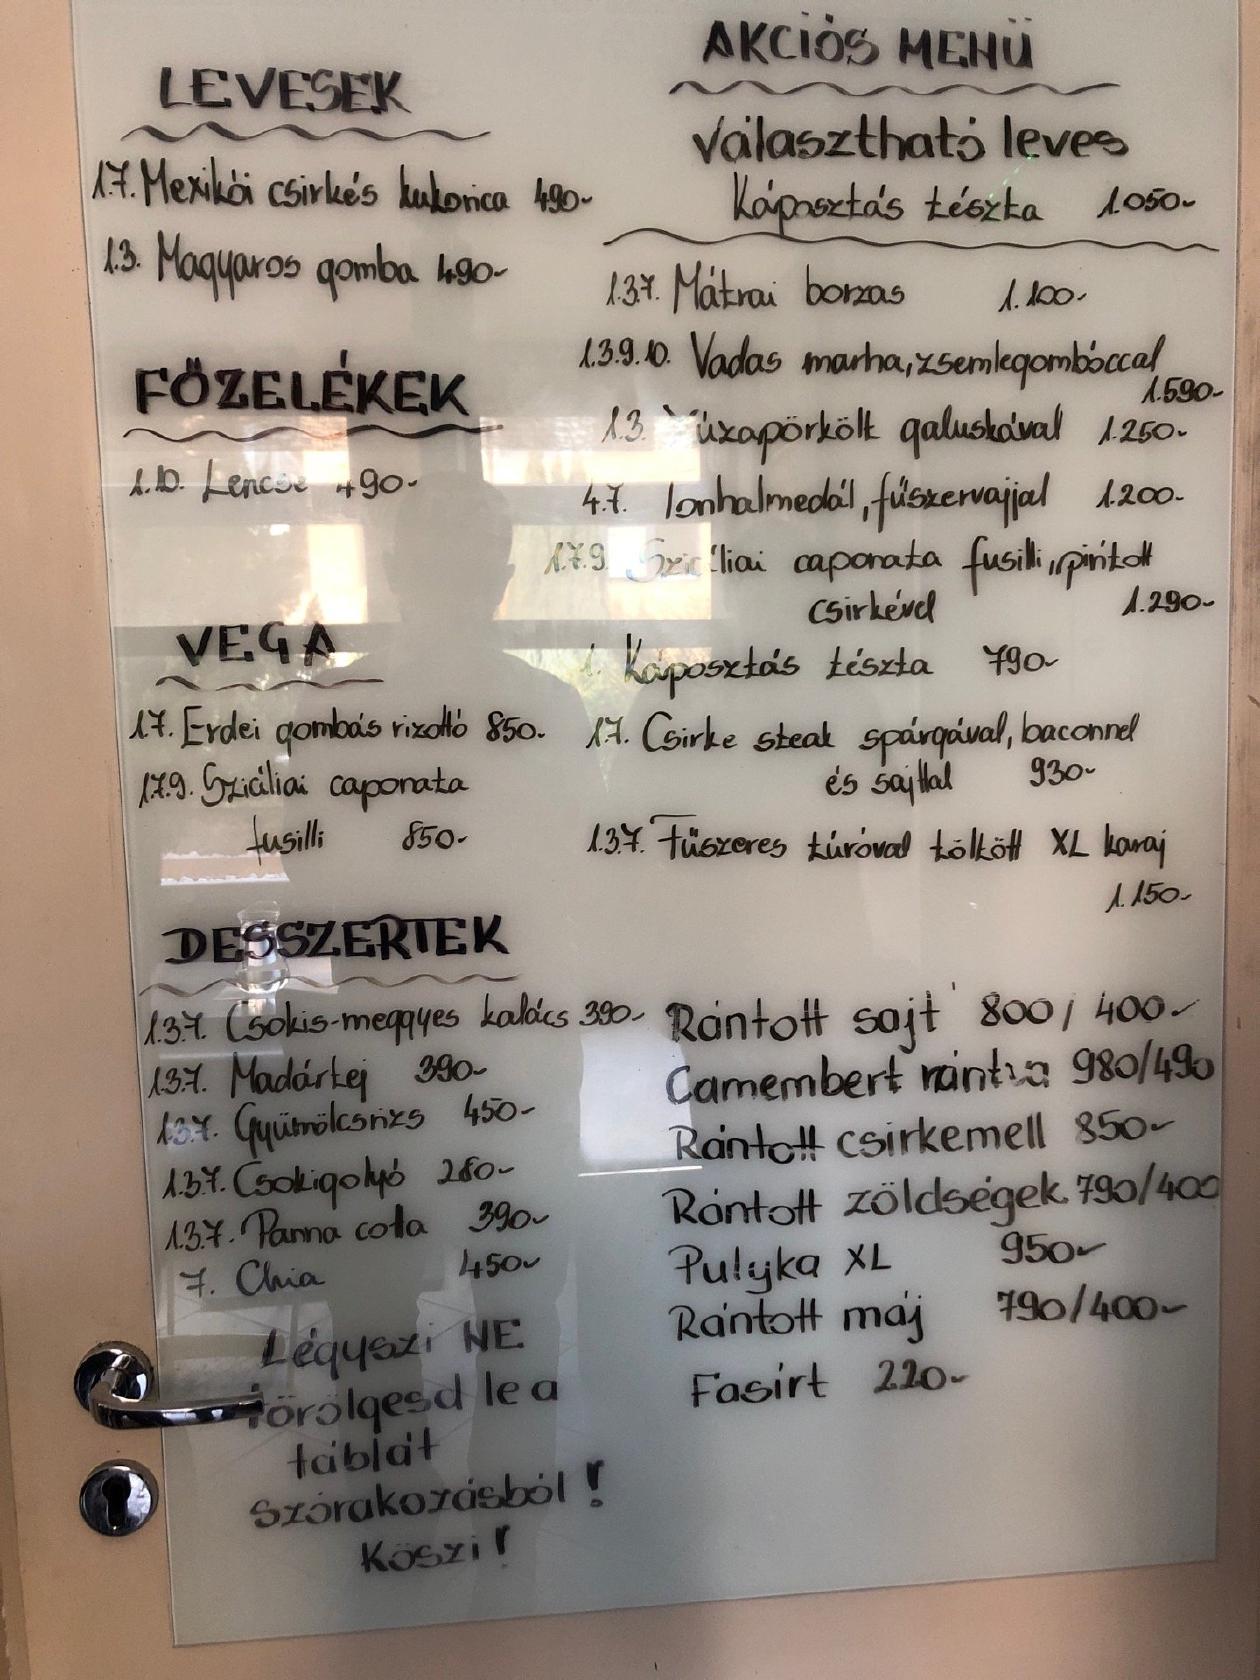 LEVESEK
1.7. Mexikói csirkés kukorica 490-
1.3. Magyaros gomba 490-
FŐZELÉKEK
1.10. Lencse 490-
VEGA
1.7. Erdei gombás rizottó 850-
1.7.9. Szicíliai caponata
fusilli 850-
DESSZERTEK
1.3.7. Csokis-meggyes kalács 390-
1.3.7. Madártej 390-
1.3.7. Gyümölcsrizs 450-
1.3.7. Csokigolyó 280-
1.3.7. Panna cotta 390-
7. Chia 450-
Légyszi NE
törölgesd le a
táblát
szórakozásból!
Köszi!
AKCIÓS MENÜ
Választható leves
Káposztás tészta 1.050-
1.3.7. Mátrai borzas 1.100-
1.3.9.10. Vadas marha, zsemlegombóccal
1.590-
1.3. Zúzapörkölt galuskával 1.250-
4.7. Tonhalmedál, fűszervajjal 1.200-
1.7.9. Szicíliai caponata fusilli, pirított
csirkével 1.290-
1. Káposztás tészta 790-
1.7. Csirke steak spárgával, baconnel
és sajttal 930-
1.3.7. Fűszeres túróval töltött XL karaj
1.150-
Rántott sajt 800/400-
Camembert rántva 980/490
Rántott csirkemell 850-
Rántott zöldségek 790/400
Pulyka XL 950-
Rántott máj 790/400-
Fasírt 220-